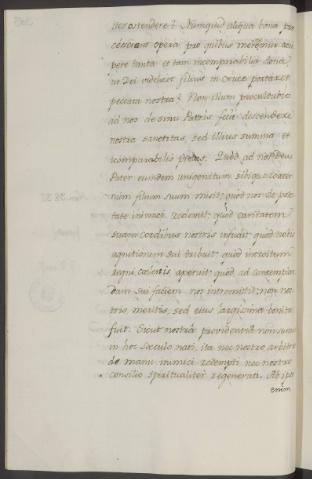 tes ostendere? Numquid aliqua bona prae
cesserant opera pro quibus meremur acci
pere tanta et tam incomparabilia dona,
ut Dei videlicet filius in Cruce portaret
peccata nostra? Non illum procul dubio
ad nos de sinu Patris fecit descendere
nostra sanctitas, sed illius summa et
incomparabilis pietas. Quod ad nos Deus
Pater eundem unigenitum sibique coaeter
num filium suum misit, quod nos de pote
tate inimici redemit, quod caritatem
suam cordibus nostris infudit, quod notis
agnitionem sui tribuit, quod introitum
regni caelestis aperuit, quod ad contemplan
dam sui faciem nos intromittit, non nos
tris meritis, sed eius largissima bonitas
fuit. Sicut nostra providentia non sumus
in hoc saeculo nati, ita nec nostro arbitrio
de manu inimici redempti, nec nostro
consilio spiritualiter regenerati. At ipse
enim